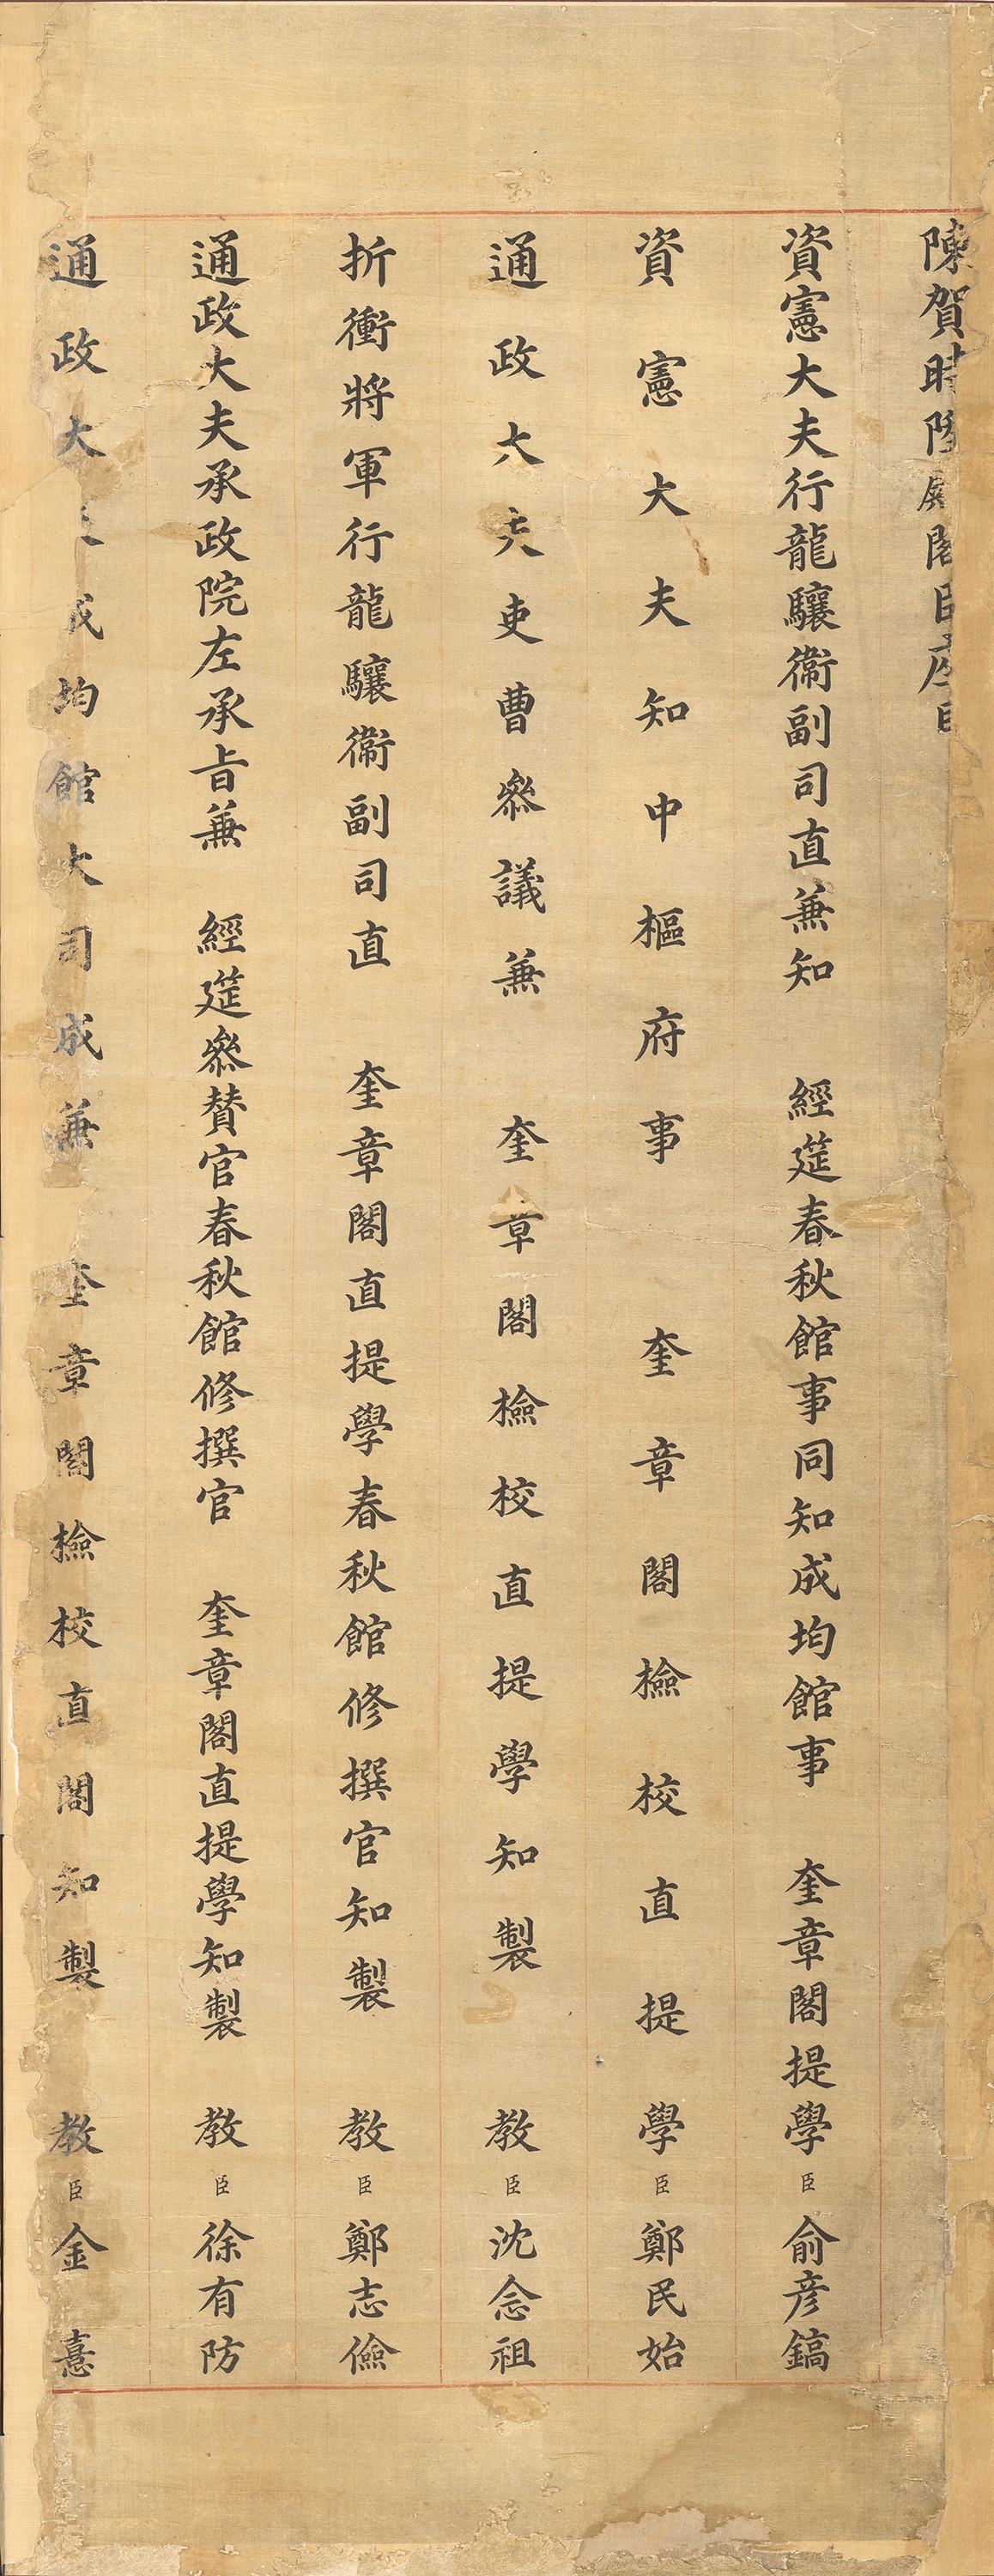 陳賀時陞殿閣臣座目
資憲大夫行龍驤衛副司直兼知 經筵春秋館事同知成均館事 奎章閣提學臣俞彦鎬
資憲大夫知中樞府事 奎章閣檢校直提學臣鄭民始
通政大夫吏曹叅議兼 奎章閣檢校直提學知製 教臣沈念祖
折衝將軍行龍驤衛副司直 奎章閣直提學春秋館修撰官知製 教臣鄭志儉
通政大夫承政院左承旨兼 經筵叅賛官春秋館修撰官 奎章閣直提學知製 教臣徐有防
通政大夫成均館大司成兼 奎章閣檢校直閣知製 教臣金憙